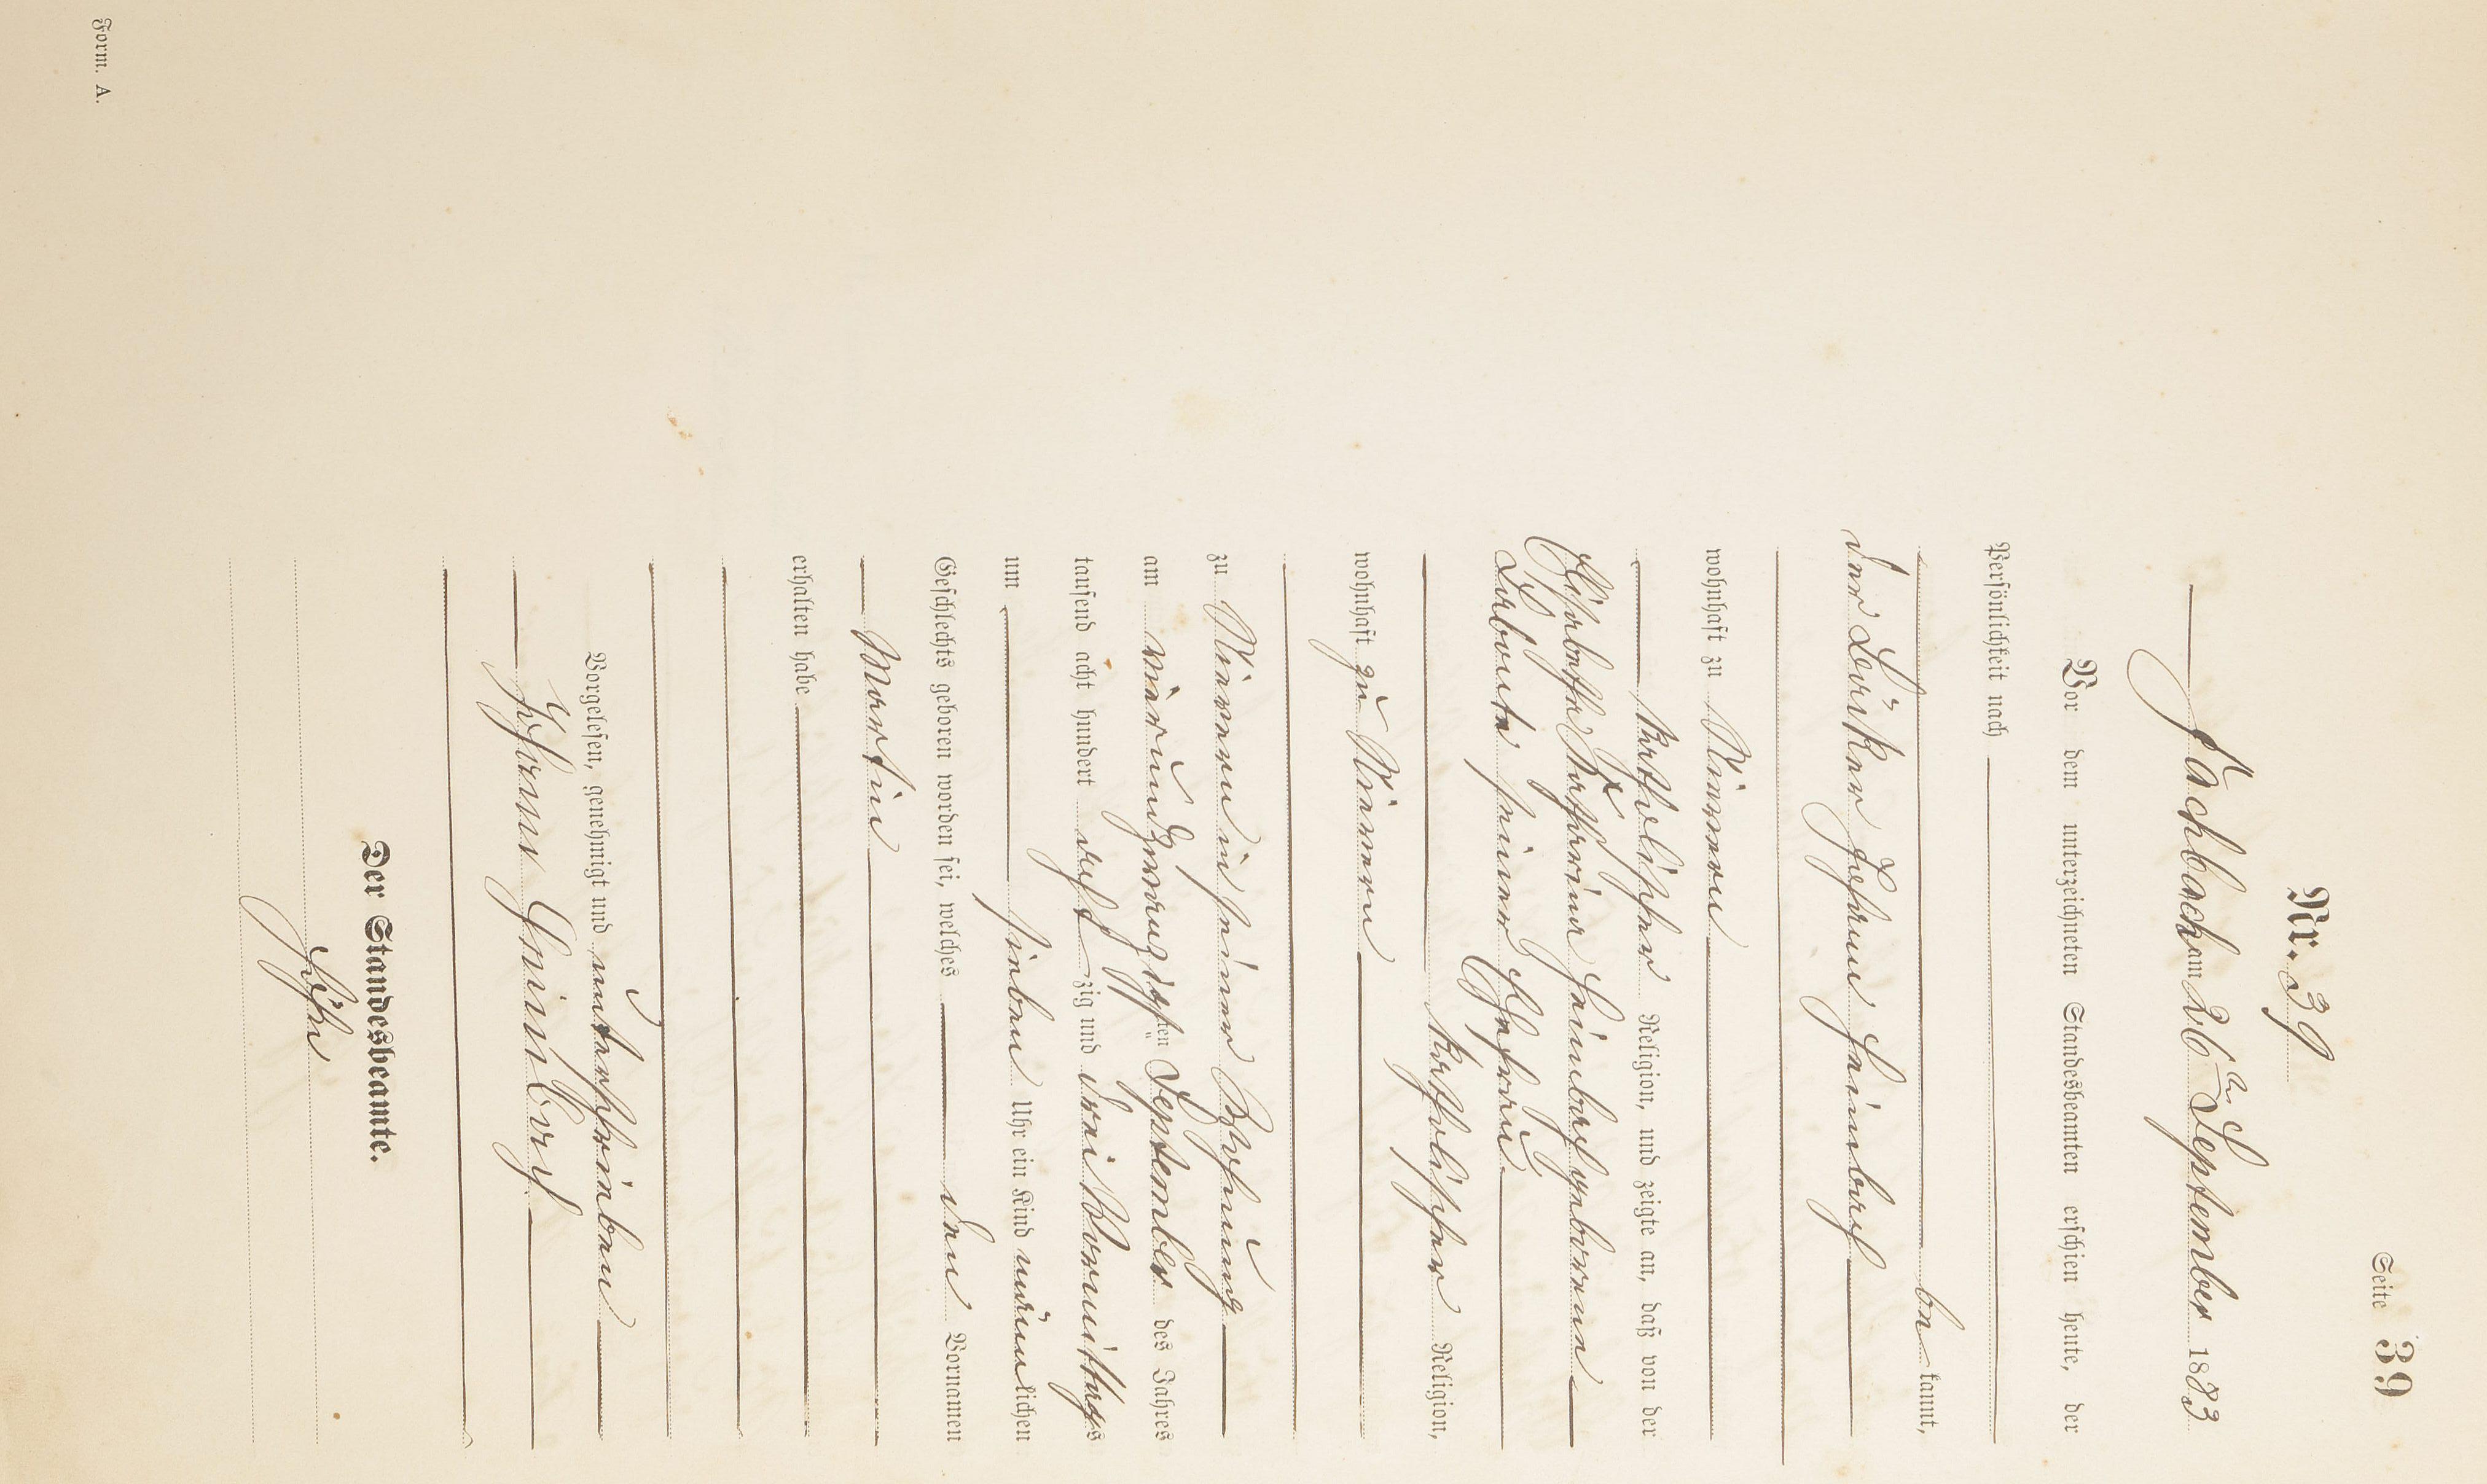 Seite 39
Nr. 39
Fachbach am 26ten September 1883
Vor dem unterzeichneten Standesbeamten erschien heute, der
Persönlichkeit nach
be kannt,
der Bäcker Johann Heimbach
wohnhaft zu Nievern
katholischer Religion, und zeigte an, daß von der
Elisabetha Katharina Heimbach geborenen
seiner Ehefrau
katholischer Religion,
wohnhaft zu Nievern
zu Nievern in seiner Wohnung
am vierundzwanzigsten September des Jahres
tausend acht hundert acht zig und drei Vormittags
um sieben Uhr ein Kind männlichen
Geschlechts geboren worden sei, welches den Vornamen
Martin
erhalten habe
Vorgelesen, genehmigt und unterschrieben
Johann Heimbach
Der Standesbeamte.
Form. A.